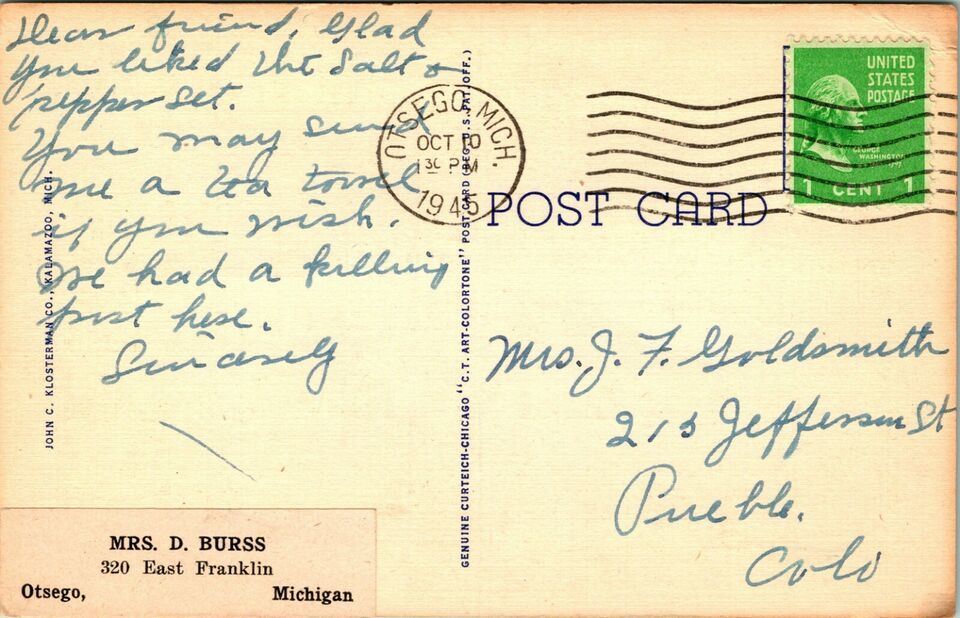 Dear friend, Glad
you liked the Salt &
pepper set.
You may send
me a tea towel
if you wish.
We had a killing
frost here.
Sincerely
MRS. D. BURSS
320 East Franklin
Otsego, Michigan
JOHN C. KLOSTERMAN CO., KALAMAZOO, MICH.
GENUINE CURTEICH-CHICAGO "C.T. ART-COLORTONE" POST CARD (REG. U.S. PAT. OFF.)
OTSEGO, MICH.
OCT 10
130 PM
1945
POST CARD
UNITED
STATES
POSTAGE
GEORGE
WASHINGTON
1 CENT 1
Mrs. J. F. Goldsmith
213 Jefferson St
Pueblo.
Colo